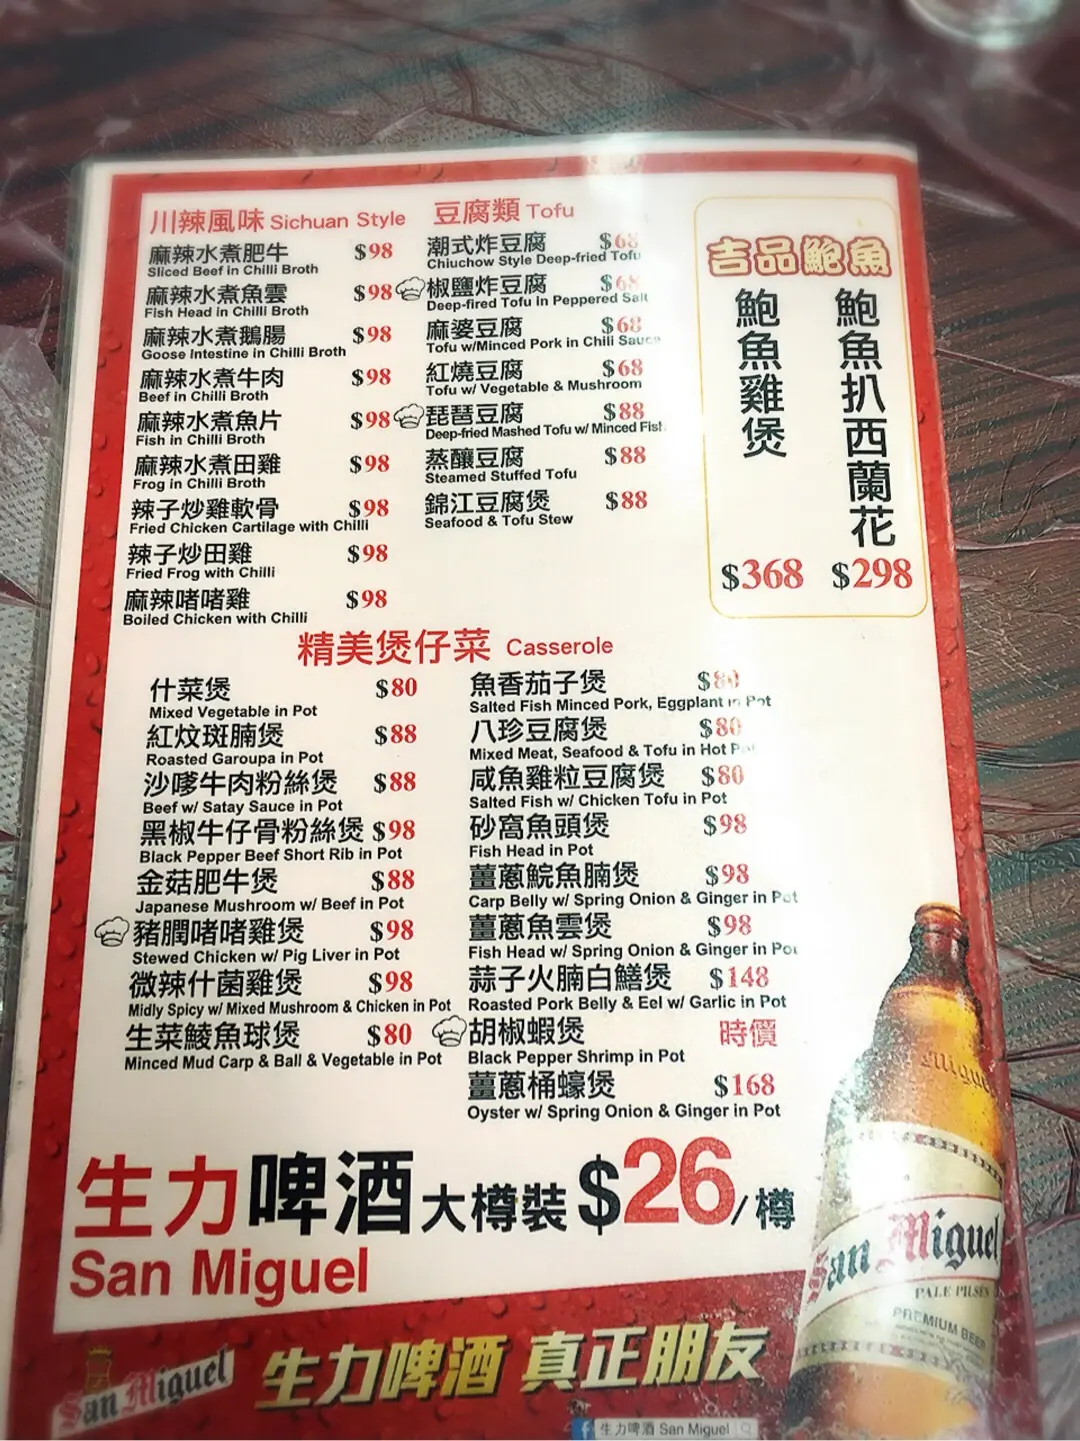 川辣風味 Sichuan Style
麻辣水煮肥牛 $98
Sliced Beef in Chilli Broth
麻辣水煮魚雲 $98
Fish Head in Chilli Broth
麻辣水煮鵝腸 $98
Goose Intestine in Chilli Broth
麻辣水煮牛肉 $98
Beef in Chilli Broth
麻辣水煮魚片 $98
Fish in Chilli Broth
麻辣水煮田雞 $98
Frog in Chilli Broth
辣子炒雞軟骨 $98
Fried Chicken Cartilage with Chilli
辣子炒田雞 $98
Fried Frog with Chilli
麻辣啫啫雞 $98
Boiled Chicken with Chilli
豆腐類 Tofu
潮式炸豆腐 $68
Chiuchow Style Deep-fried Tofu
椒鹽炸豆腐 $68
Deep-fired Tofu in Peppered Salt
麻婆豆腐 $68
Tofu w/Minced Pork in Chili Sauce
紅燒豆腐 $68
Tofu w/ Vegetable & Mushroom
琵琶豆腐 $88
Deep-fried Mashed Tofu w/ Minced Fish
蒸釀豆腐 $88
Steamed Stuffed Tofu
錦江豆腐煲 $88
Seafood & Tofu Stew
吉品鮑魚
鮑魚扒西蘭花
$298
鮑魚雞煲
$368
精美煲仔菜 Casserole
什菜煲 $80
Mixed Vegetable in Pot
紅炆斑腩煲 $88
Roasted Garoupa in Pot
沙嗲牛肉粉絲煲 $88
Beef w/ Satay Sauce in Pot
黑椒牛仔骨粉絲煲 $98
Black Pepper Beef Short Rib in Pot
金菇肥牛煲 $88
Japanese Mushroom w/ Beef in Pot
豬膶啫啫雞煲 $98
Stewed Chicken w/ Pig Liver in Pot
微辣什菌雞煲 $98
Midly Spicy w/ Mixed Mushroom & Chicken in Pot
生菜鯪魚球煲 $80
Minced Mud Carp & Ball & Vegetable in Pot
魚香茄子煲 $80
Salted Fish Minced Pork, Eggplant in Pot
八珍豆腐煲 $80
Mixed Meat, Seafood & Tofu in Hot Pot
咸魚雞粒豆腐煲 $80
Salted Fish w/ Chicken Tofu in Pot
砂窩魚頭煲 $98
Fish Head in Pot
薑蔥鯇魚腩煲 $98
Carp Belly w/ Spring Onion & Ginger in Pot
薑蔥魚雲煲 $98
Fish Head w/ Spring Onion & Ginger in Pot
蒜子火腩白鱔煲 $148
Roasted Pork Belly & Eel w/ Garlic in Pot
胡椒蝦煲 時價
Black Pepper Shrimp in Pot
薑蔥桶蠔煲 $168
Oyster w/ Spring Onion & Ginger in Pot
生力啤酒大樽裝 $26/樽
San Miguel
San Miguel
PALE PILSEN
PREMIUM BEER
San Miguel 生力啤酒 真正朋友
生力啤酒 San Miguel